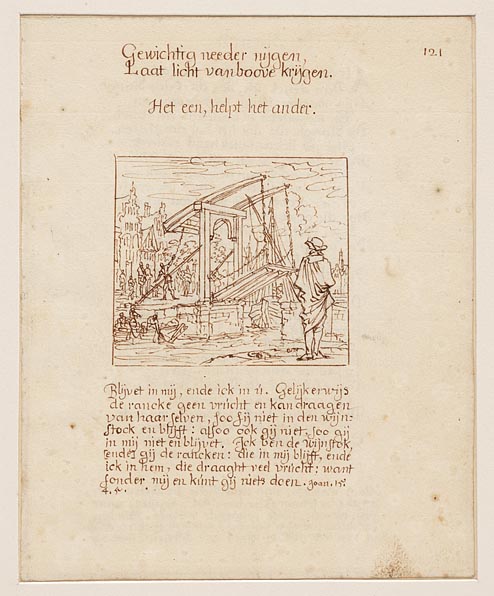 Gewichtig needer nijgen,
121
Laat licht van boove krijgen.
Het een, helpt het ander.
Blijvet in mij, ende ick in ú. Gelijkerwijs
de rancke geen vrúcht en kan draagen
van haar selven, soo sij niet in den wijn-
stock en blijft: alsoo ook gij niet, soo gij
in mij niet en blijvet. Ick ben de wijnstok,
ende gij de rancken: die in mij blijft, ende
ick in hem, die draaght veel vrúcht: want
sonder mij en kúnt gij niets doen. Joan. 15: